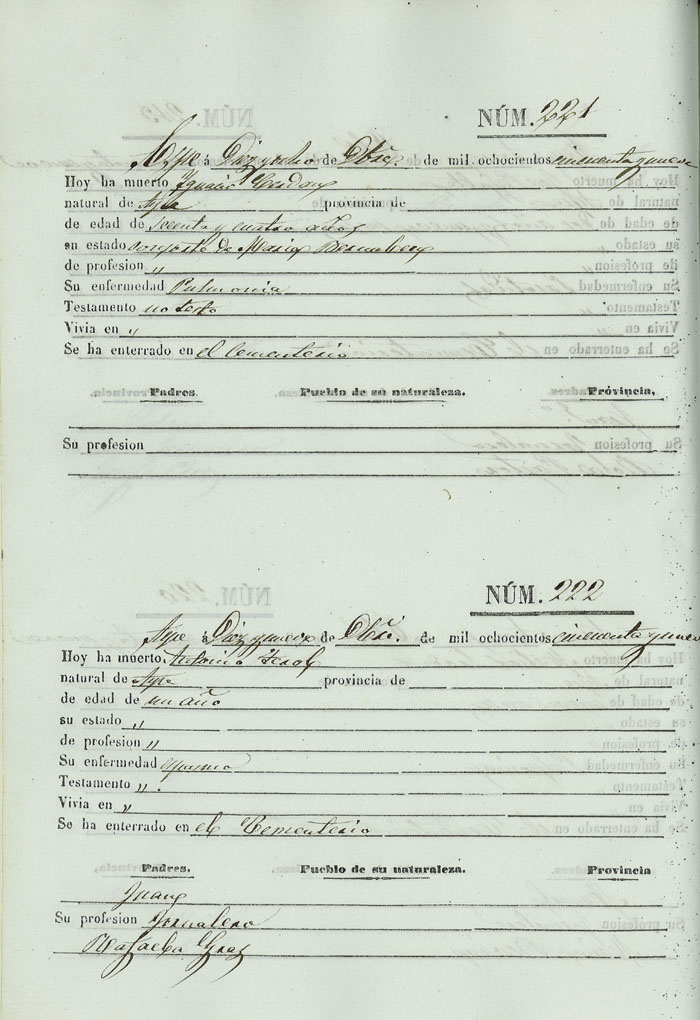 NÚM. 221
Aspe á Diez y ocho de Obre. de mil ochocientos cincuenta y nueve
Hoy ha muerto Ignacio
natural de Aspe provincia de
de edad de y cuatro años
su estado consorte de Maria
de profesion "
Su enfermedad Pulmonia
Testamento no testo
Vivia en "
Se ha enterrado en el Cementerio
Padres. Pueblo de su naturaleza. Próvincia,
Su profesion
NÚM. 222
Aspe á Diez y nueve de Obre. de mil ochocientos cincuenta y nueve
Hoy ha muerto Antonio
natural de Aspe provincia de
de edad de un año
su estado "
de profesion "
Su enfermedad
Testamento ".
Vivia en "
Se ha enterrado en el Cementerio
Padres. Pueblo de su naturaleza. Provincia
Juan
Su profesion Jornalero
Rafaela